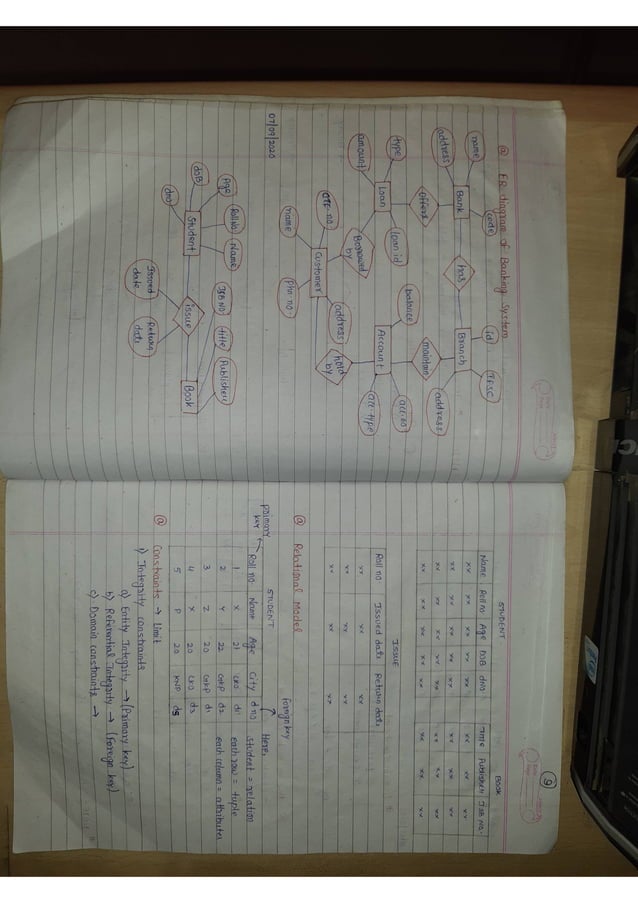 @ ER diagram of Banking System
name
code
address
Bank
has
Branch
id
IFSC
address
offers
maintain
type
loan id
Loan
amount
balance
Account
acc-type
Borrowed by
hold by
Customer
name
Phn no.
address
07/09/2020
Age
Roll no
Name
doB
dno
Student
issue
Issued date
Return date
Book
title
Publisher
9
STUDENT.
Name Roll no Age DOB dno.
xx xx xx xx xx
xx xx xx xx xx
xx xx xx xx xx
xx xx xx xx xx
BOOK
Title Publisher ISB No.
xx xx xx
xx xx xx
xx xx xx
xx xx xx
ISSUE
Roll no. Issued date Return date
xx xx xx
xx xx xx
xx xx xx
@ Relational Model
primary key
foreign key
STUDENT
Roll no Name Age City dno
1 X 21 LKO d1
2 Y 22 GKP d2
3 Z 20 GKP d1
4 X 20 LKO d3
5 P 20 KNP d5
Here,
student = relation
each row = tuple
each column = attributes
@ Constraints → Limit
1) Integrity constraints
a) Entity Integrity → (Primary key)
b) Referential Integrity → (Foreign key)
c) Domain constraints →